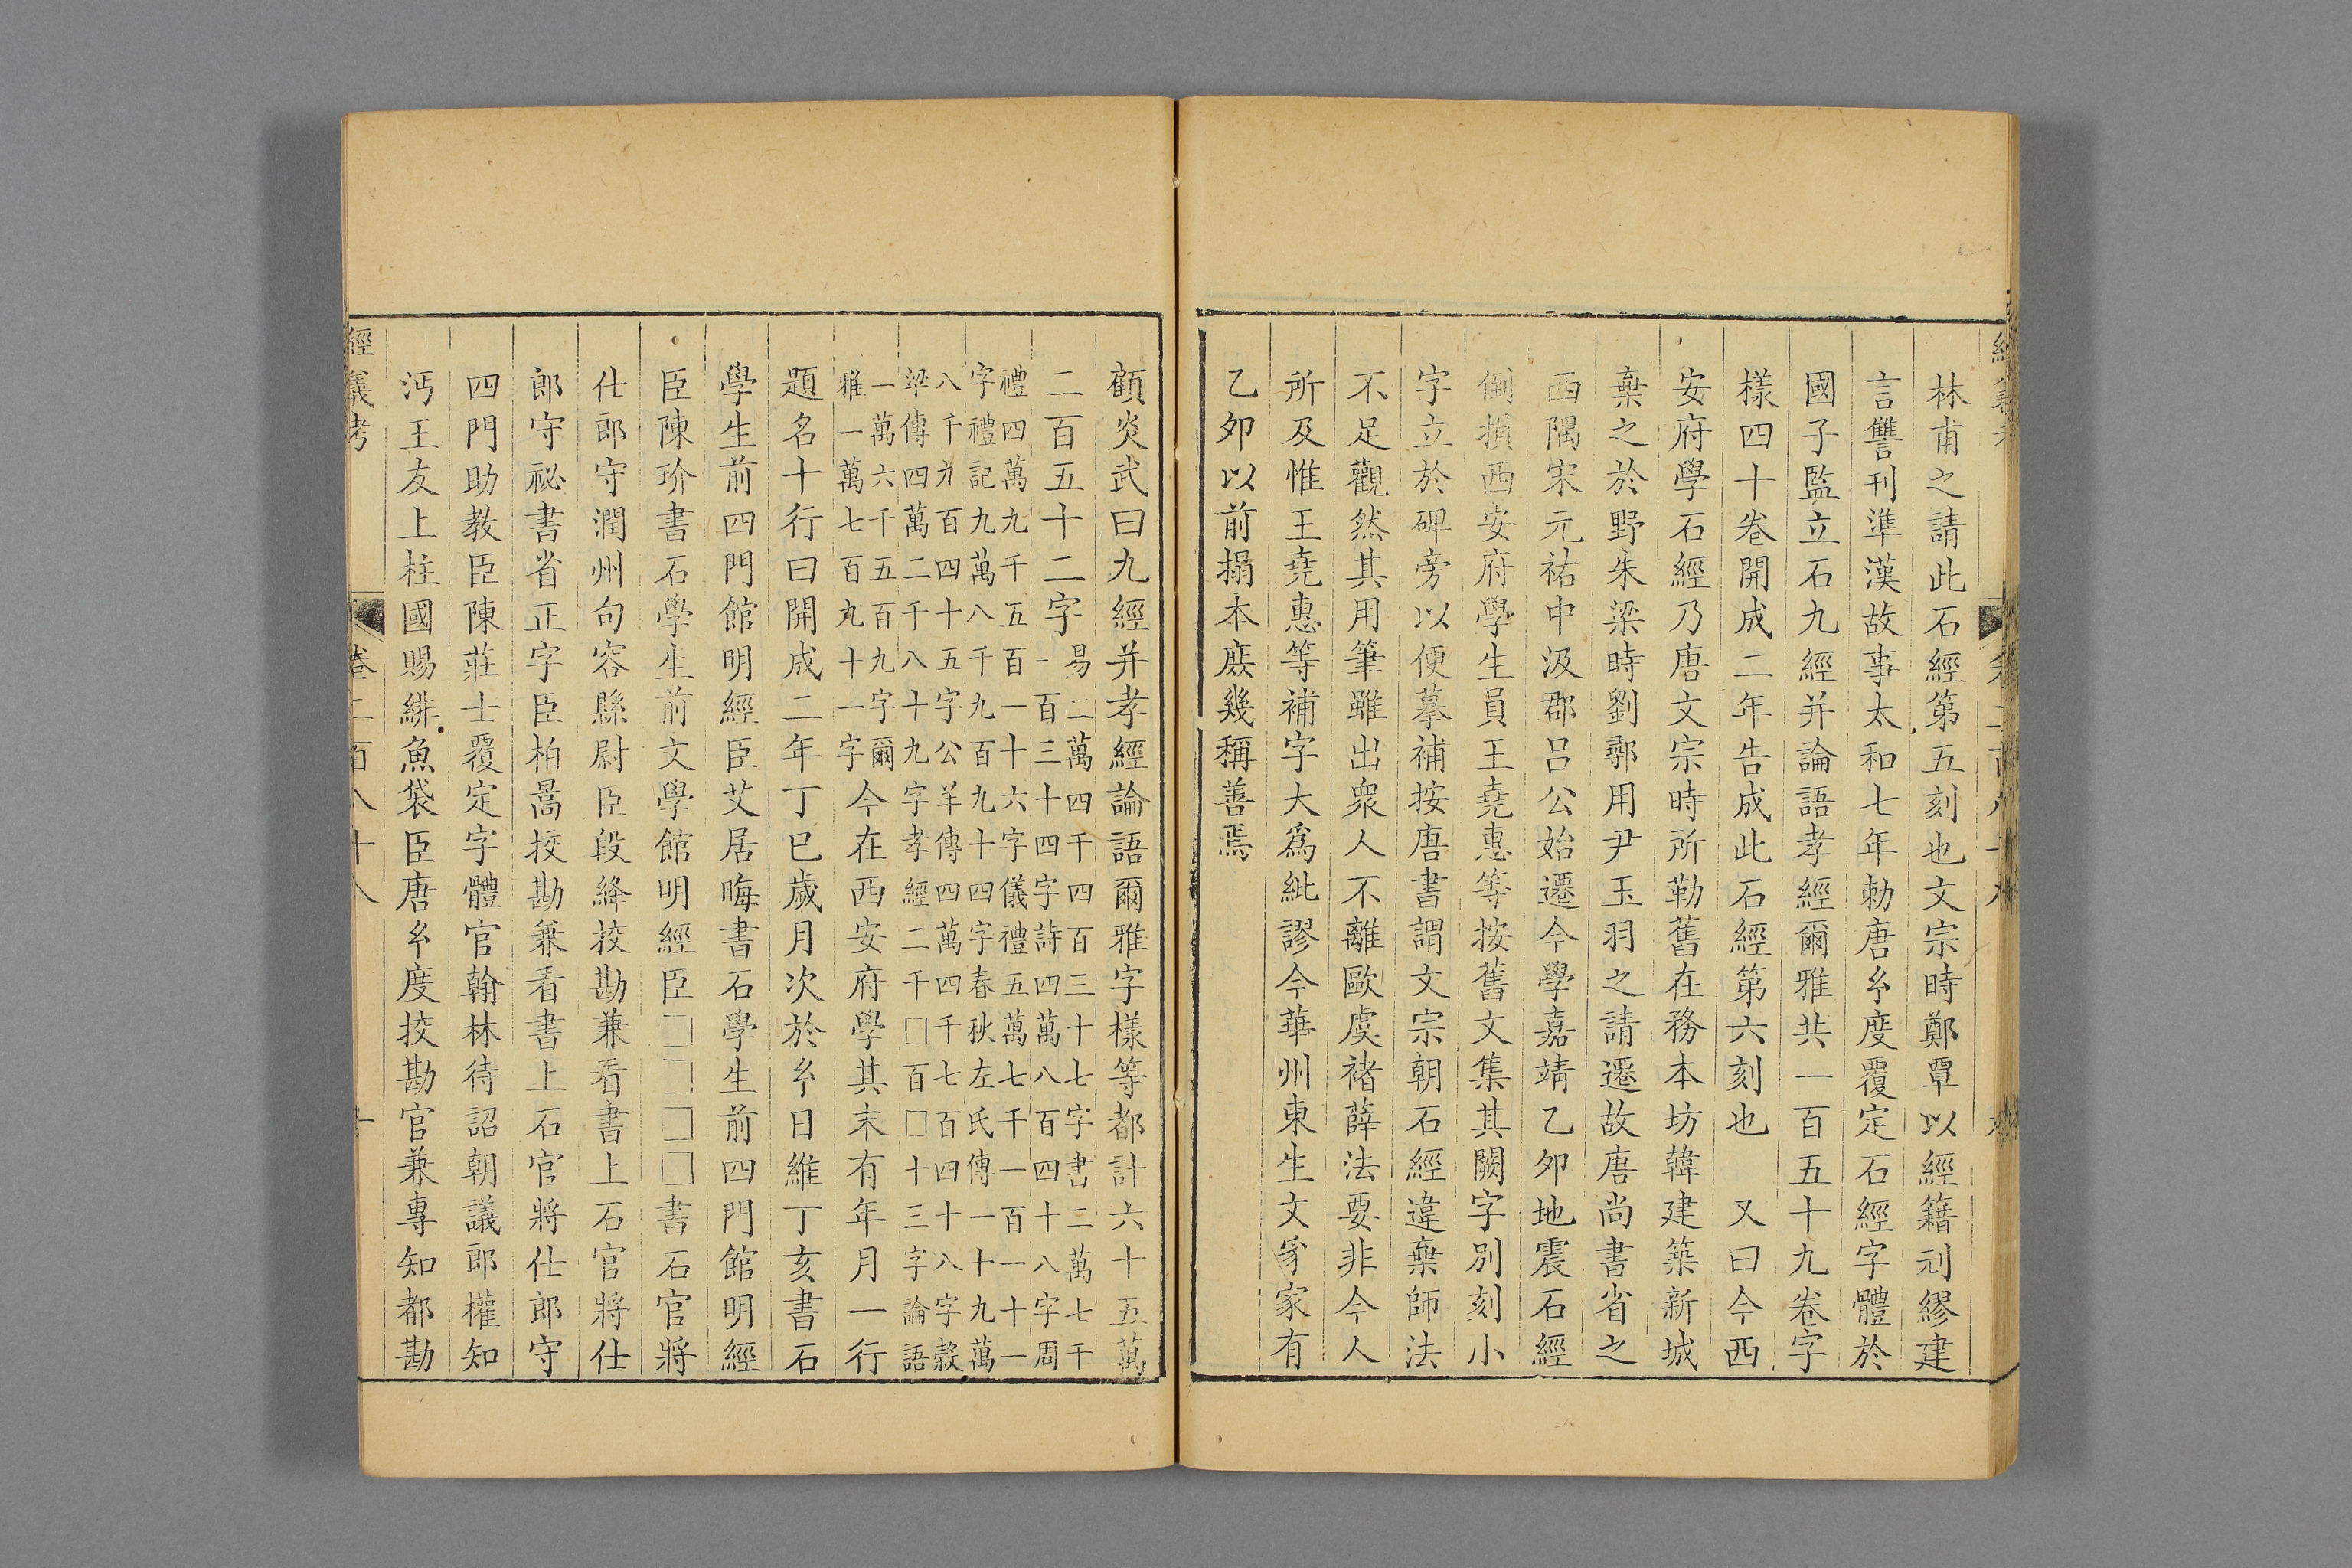 林甫之請此石經第五刻也文宗時鄭覃以經籍刓繆建
言讐刊準漢故事太和七年勅唐𤣥度覆定石經字體於
國子監立石九經并論語孝經爾雅共一百五十九卷字
樣四十卷開成二年告成此石經第六刻也 又曰今西
安府學石經乃唐文宗時所勒舊在務本坊韓建築新城
棄之於野朱梁時劉鄩用尹玉羽之請遷故唐尚書省之
西隅宋元祐中汲郡呂公始遷今學嘉靖乙夘地震石經
倒損西安府學生員王堯惠等按舊文集其闕字別刻小
字立於碑旁以便摹補按唐書謂文宗朝石經違棄師法
不足觀然其用筆雖出衆人不離歐虞褚薛法要非今人
所及惟王堯惠等補字大爲紕謬今華州東生文豸家有
乙夘以前搨本庶幾稱善焉
顧炎武曰九經并孝經論語爾雅字樣等都計六十五萬
二百五十二字易二萬四千四百三十七字書二萬七千
一百三十四字詩四萬八百四十八字周
禮四萬九千五百一十六字儀禮五萬七千一百一十一
字禮記九萬八千九百九十四字春秋左氏傳一十九萬
八千九百四十五字公羊傳四萬四千七百四十八字穀
梁傳四萬二千八十九字孝經二千□百□十三字論語
一萬六千五百九字爾
雅一萬七百九十一字今在西安府學其末有年月一行
題名十行曰開成二年丁巳歲月次於𤣥日維丁亥書石
學生前四門館明經臣艾居晦書石學生前四門館明經
臣陳玠書石學生前文學館明經臣□□□□書石官將
仕郎守潤州句容縣尉臣段絳挍勘兼看書上石官將仕
郎守祕書省正字臣柏暠挍勘兼看書上石官將仕郎守
四門助教臣陳莊士覆定字體官翰林待詔朝議郎權知
沔王友上柱國賜緋魚袋臣唐𤣥度挍勘官兼專知都勘
經義考 卷二百八十八 十